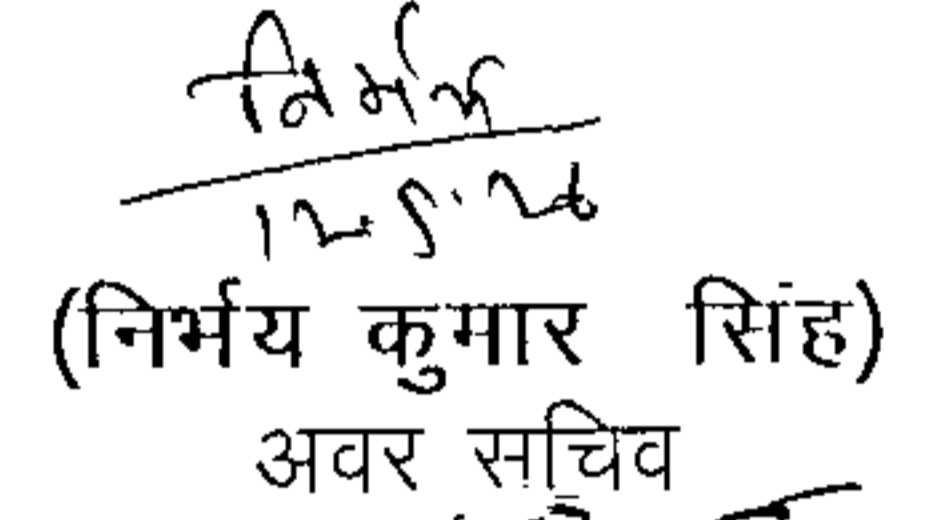 निर्भय
12.5.26
(निर्भय कुमार सिंह)
अवर सचिव